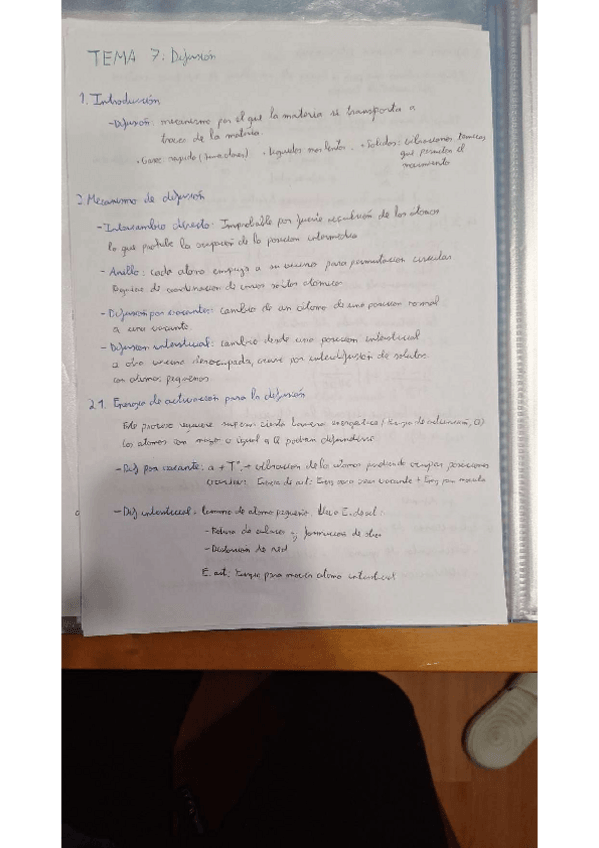 TEMA 7: Difusión
1. Introducción
- Difusión: mecanismo por el que la materia se transporta a
traves de la materia.
· Gases: rapido · Liquidos: mas lentos · Solidos: vibraciones termicas
que permiten el
movimiento
2. Mecanismo de difusión
- Intercambio directo: Improbable por fuerte repulsión de los atomos
lo que prohibe la ocupación de la posición intermedia
- Anillo: cada atomo empuja a su vecino para permutacion circular
Requiere de coordinacion de varios saltos atomicos
- Difusión por vacantes: cambio de un atomo de una posicion normal
a una vacante.
- Difusion intersticial: cambio desde una posicion intersticial
a otra vecina desocupada, por interdifusión de solutos
con atomos pequeños
2.1. Energia de activacion para la difusión
Este proceso requiere superar cierta barrera energetica (Energia de activación, Q)
Los atomos con mayor o igual a Q podran difundirse.
- Dif por vacante: a + Tª, + vibracion de los atomos pudiendo ocupar posiciones
vacantes. Energia de act: Energ para crear vacante + Energ para moverla
- Dif intersticial: tamaño de atomo pequeño.
- Rotura de enlaces y formacion de otros
- Distorsion de red
E. act: Energia para mover atomo intersticial